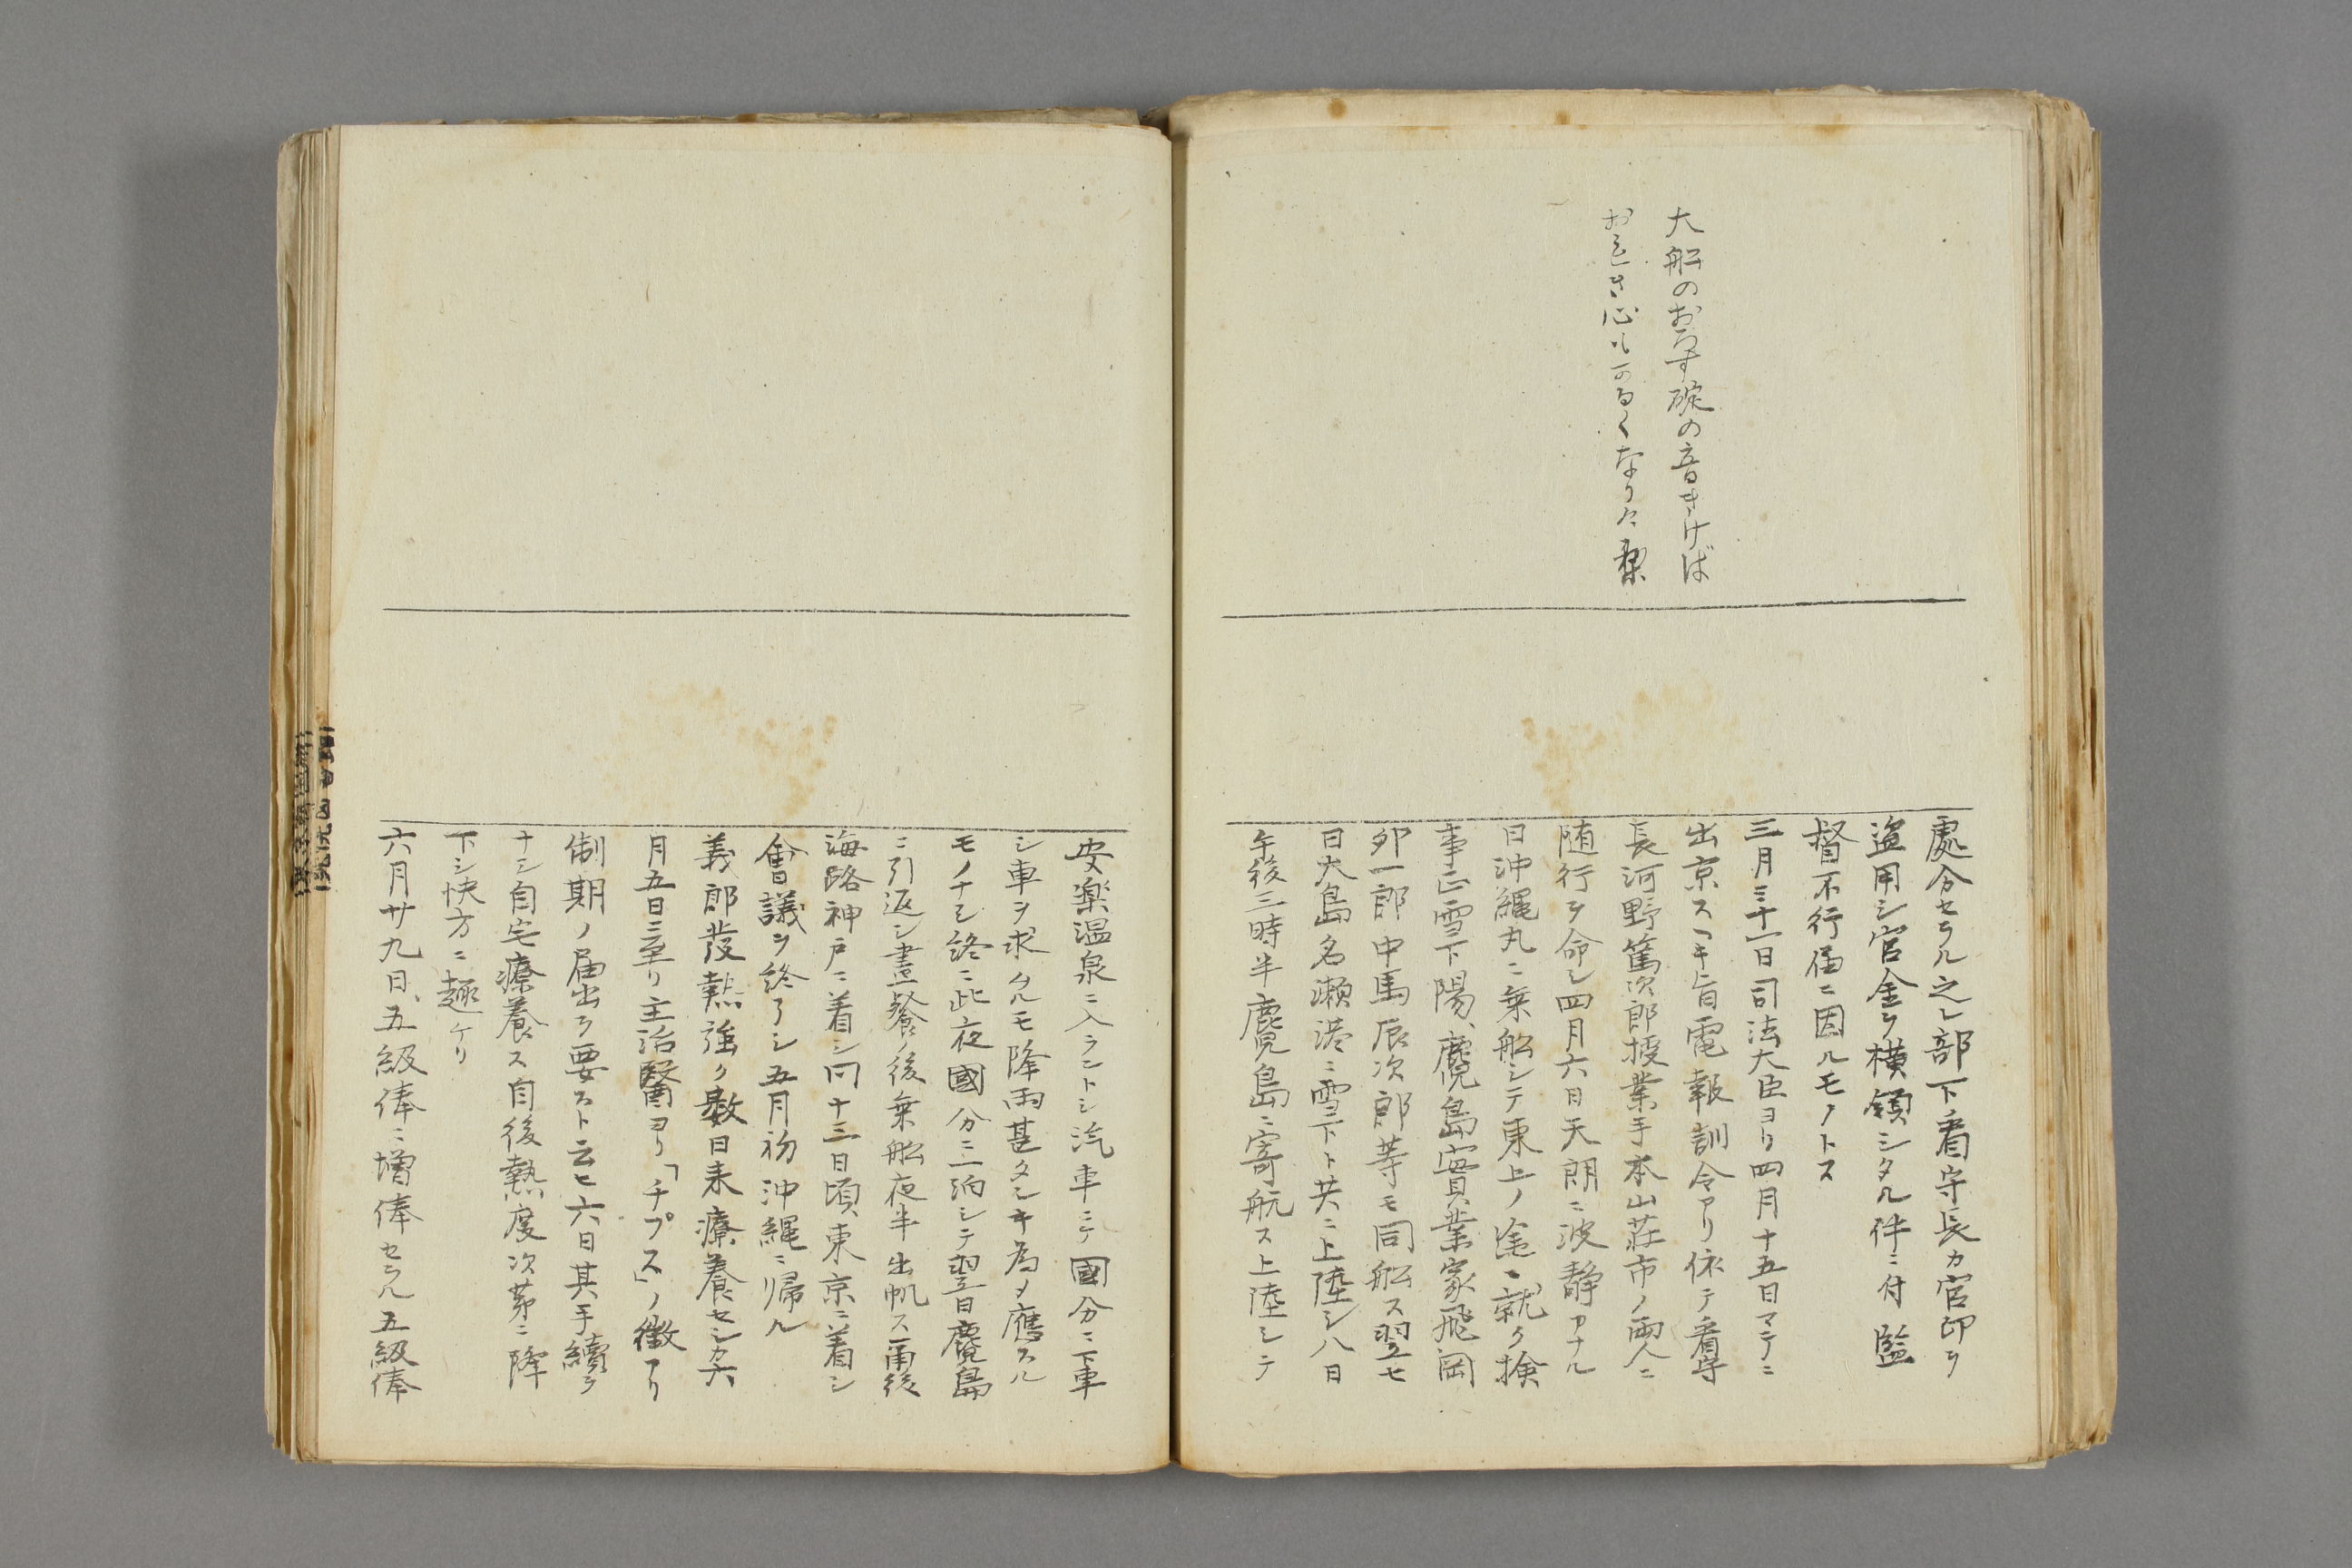 大船のおろす碇の音きけば
おもき心もかるくなりに梨
處分セラル之レ部下看守長カ官印ヲ
盗用シ官金ヲ横領シタル件ニ付監
督不行届ニ因ルモノトス
三月三十一日司法大臣ヨリ四月十五日マテニ
出京スヘキ旨電報訓令アリ依テ看守
長河野篤次郎授業手本山荘市ノ両人ニ
随行ヲ命シ四月六日天朗ニ波静カナル
日沖縄丸ニ乗船シテ東上ノ途ニ就ク検
事正雪下陽、麑島實業家飛岡
卯一郎中馬辰次郎等モ同船ス翌七
日大島名瀬港ニ雪下ト共ニ上陸シ八日
午後三時半麑島ニ寄航ス上陸シテ
安楽温泉ニ入ラントシ汽車ニテ國分ニ下車
シ車ヲ求ムルモ降雨甚タシキ為メ應スル
モノナシ終ニ此夜國分ニ一泊シテ翌日麑島
ニ引返シ晝餐ノ後乗船夜半出帆ス爾後
海路神戸ニ着シ同十三日頃東京ニ着シ
會議ヲ終了シ五月初沖縄ニ帰ル
義郎發熱強ク数日来療養セシカ六
月五日ニ至リ主治醫ヨリ「チプス」ノ徴アリ
制期ノ届出ヲ要スト云ヒ六日其手續ヲ
ナシ自宅療養ス自後熱度次第ニ降
下シ快方ニ趣ケリ
六月廿九日、五級俸ニ増俸セラル五級俸